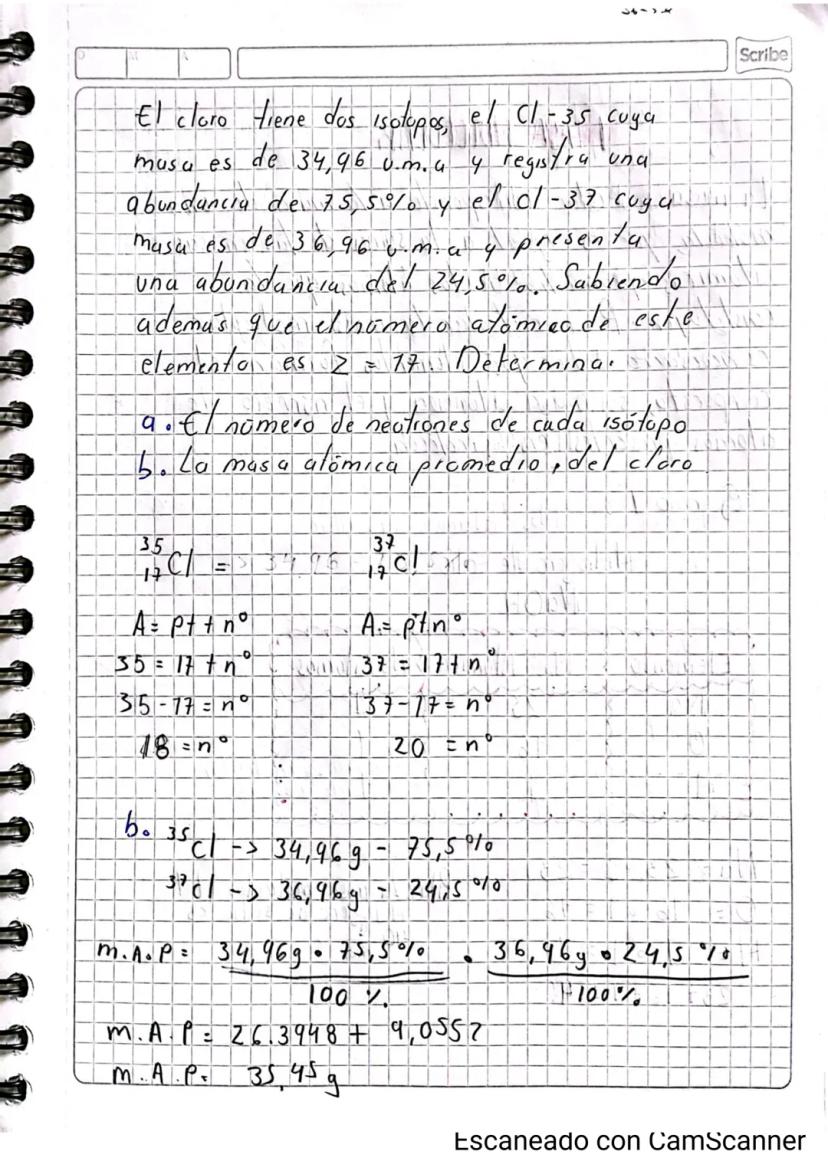 Scribe
El cloro tiene dos isotopos, el Cl-35 cuya
masa es de 34,96 u.m.a y registra una
abundancia de 75,5% y el cl-37 cuya
masa es de 36,96 u.m.a y presenta
una abundancia del 24,5%. Sabiendo
además que el número atómico de este
elemento es Z = 17. Determina.
a. El número de neutrones de cada isótopo
b. La masa atómica promedio, del cloro
³⁵₁₇Cl = ³⁷₁₇Cl
A = p+ + n° A = p+ + n°
35 = 17 + n° 37 = 17 + n°
35 - 17 = n° 37 - 17 = n°
18 = n° 20 = n°
b. ³⁵Cl -> 34,96 g - 75,5 %
³⁷Cl -> 36,96 g - 24,5 %
m.A.P = 34,96g • 75,5% • 36,96g • 24,5 %
100 % 100%
m.A.P = 26.3948 + 9,0552
m.A.P = 35,45 g
Escaneado con CamScanner